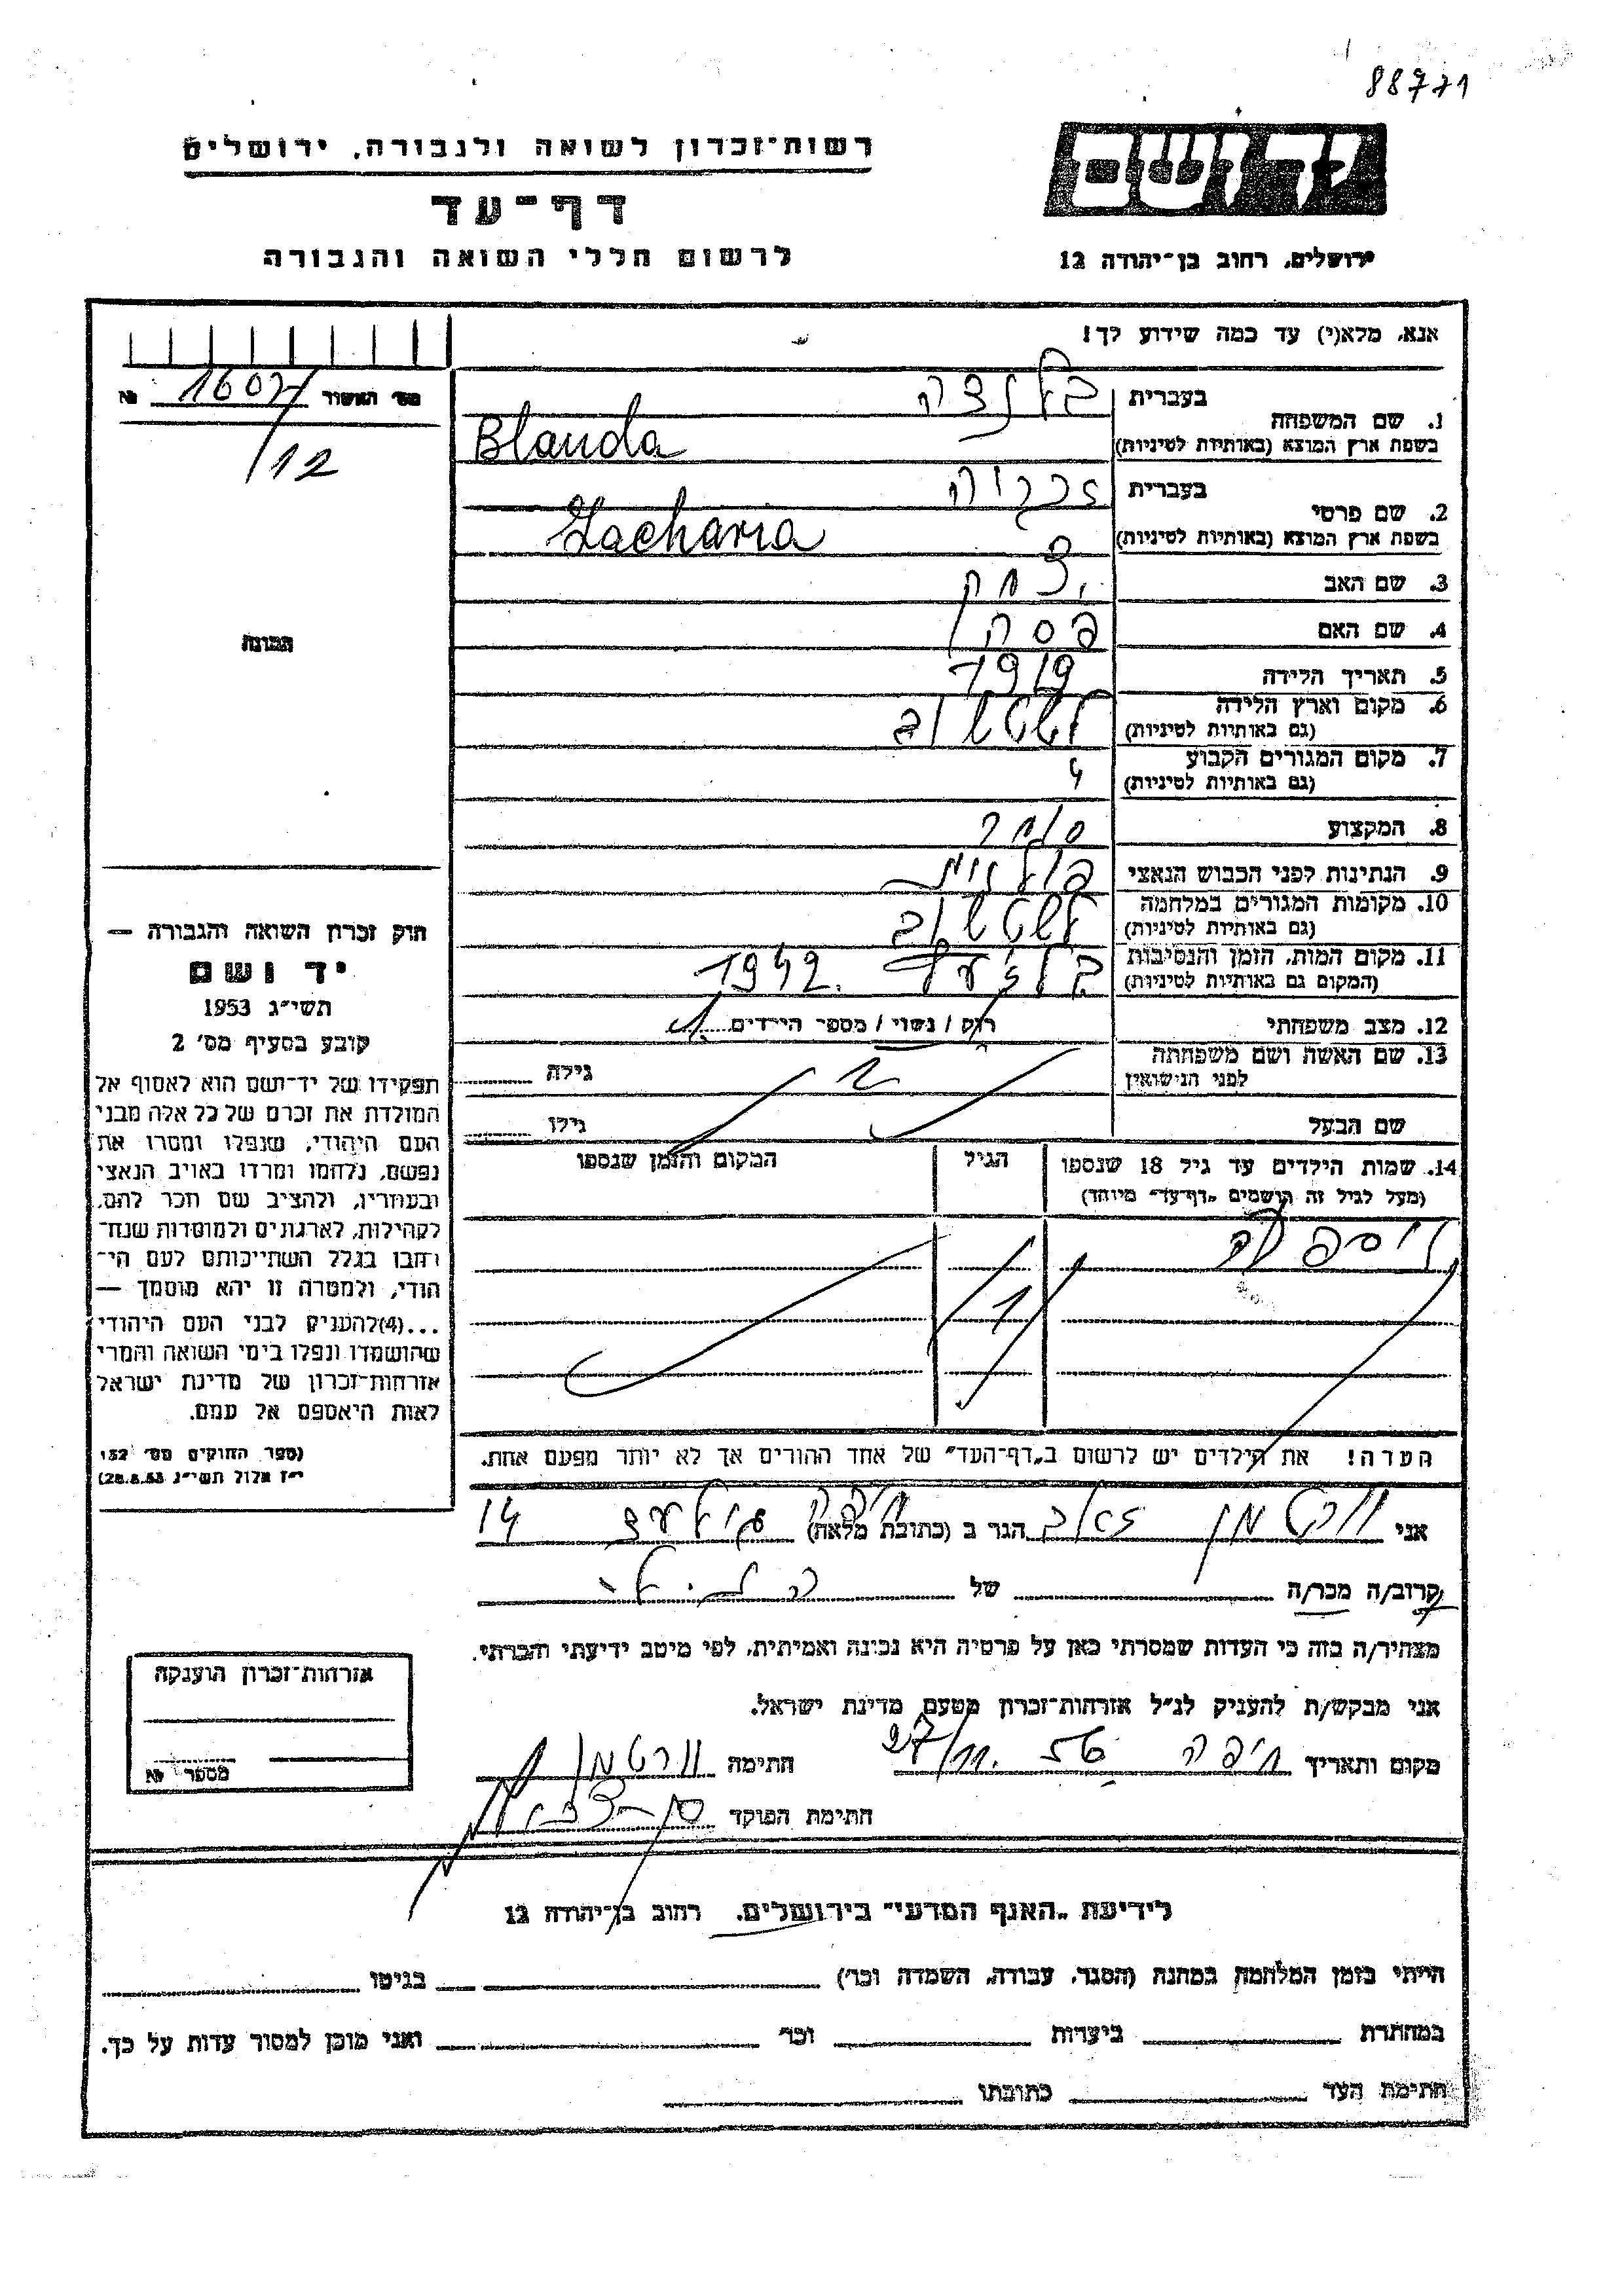 88771
רשות־זכרון לשואה ולגבורה, ירושלים
דף־עד
לרשום חללי השואה והגבורה
יד ושם
ירושלים, רחוב בן־יהודה 12
אנא, מלא(י) עד כמה שידוע לך!
מס' האשור № 1607/
/12
1. שם המשפחה
בעברית בלנדה
בשפת ארץ המוצא (באותיות לטיניות) Blanda
2. שם פרטי
בעברית זכריה
בשפת ארץ המוצא (באותיות לטיניות) Zacharia
3. שם האב יצחק
4. שם האם פסה
5. תאריך הלידה 1919
6. מקום וארץ הלידה
(גם באותיות לטיניות)
7. מקום המגורים הקבוע
(גם באותיות לטיניות)
8. המקצוע סוחר
9. הנתינות לפני הכבוש הנאצי פולנית
10. מקומות המגורים במלחמה
(גם באותיות לטיניות)
11. מקום המות, הזמן והנסיבות בלזעץ 1942.
(המקום גם באותיות לטיניות)
12. מצב משפחתי רוק / נשוי / מספר הילדים 1
13. שם האשה ושם משפחתה
לפני הנישואין גילה
שם הבעל גילו
14. שמות הילדים עד גיל 18 שנספו
(מעל לגיל זה רושמים „דף־עד" מיוחד)
הגיל
המקום והזמן שנספו
1
הערה! את הילדים יש לרשום ב„דף־העד" של אחד ההורים אך לא יותר מפעם אחת.
תמונה
חוק זכרון השואה והגבורה —
יד ושם
תשי"ג 1953
קובע בסעיף מס' 2
תפקידו של יד־ושם הוא לאסוף אל
המולדת את זכרם של כל אלה מבני
העם היהודי, שנפלו ומסרו את
נפשם, נלחמו ומרדו באויב הנאצי
ובעוזריו, ולהציב שם וזכר להם,
לקהילות, לארגונים ולמוסדות שנח־
רבו בגלל השתייכותם לעם הי־
הודי, ולמטרה זו יהא מוסמך —
...(4)להעניק לבני העם היהודי
שהושמדו ונפלו בימי השואה והמרי
אזרחות־זכרון של מדינת ישראל
לאות היאספם אל עמם.
(ספר החוקים מס' 132
י"ז אלול תשי"ג 28.8.53)
אני וורטמן זאב הגר ב (כתובת מלאה) חיפה 14
קרוב/ה מכר/ה של
מצהיר/ה בזה כי העדות שמסרתי כאן על פרטיה היא נכונה ואמיתית, לפי מיטב ידיעתי והכרתי.
אני מבקש/ת להעניק לנ"ל אזרחות־זכרון מטעם מדינת ישראל.
מקום ותאריך חיפה 27/11. 56 חתימה וורטמן
חתימת הפוקד
אזרחות־זכרון הוענקה
מספר №
לידיעת „האגף המדעי" בירושלים, רחוב בן־יהודה 12
הייתי בזמן המלחמה במחנה (הסגר, עבודה, השמדה וכו') בגיטו
במחתרת ביערות וכו' ואני מוכן למסור עדות על כך.
חתימת העד כתובתו